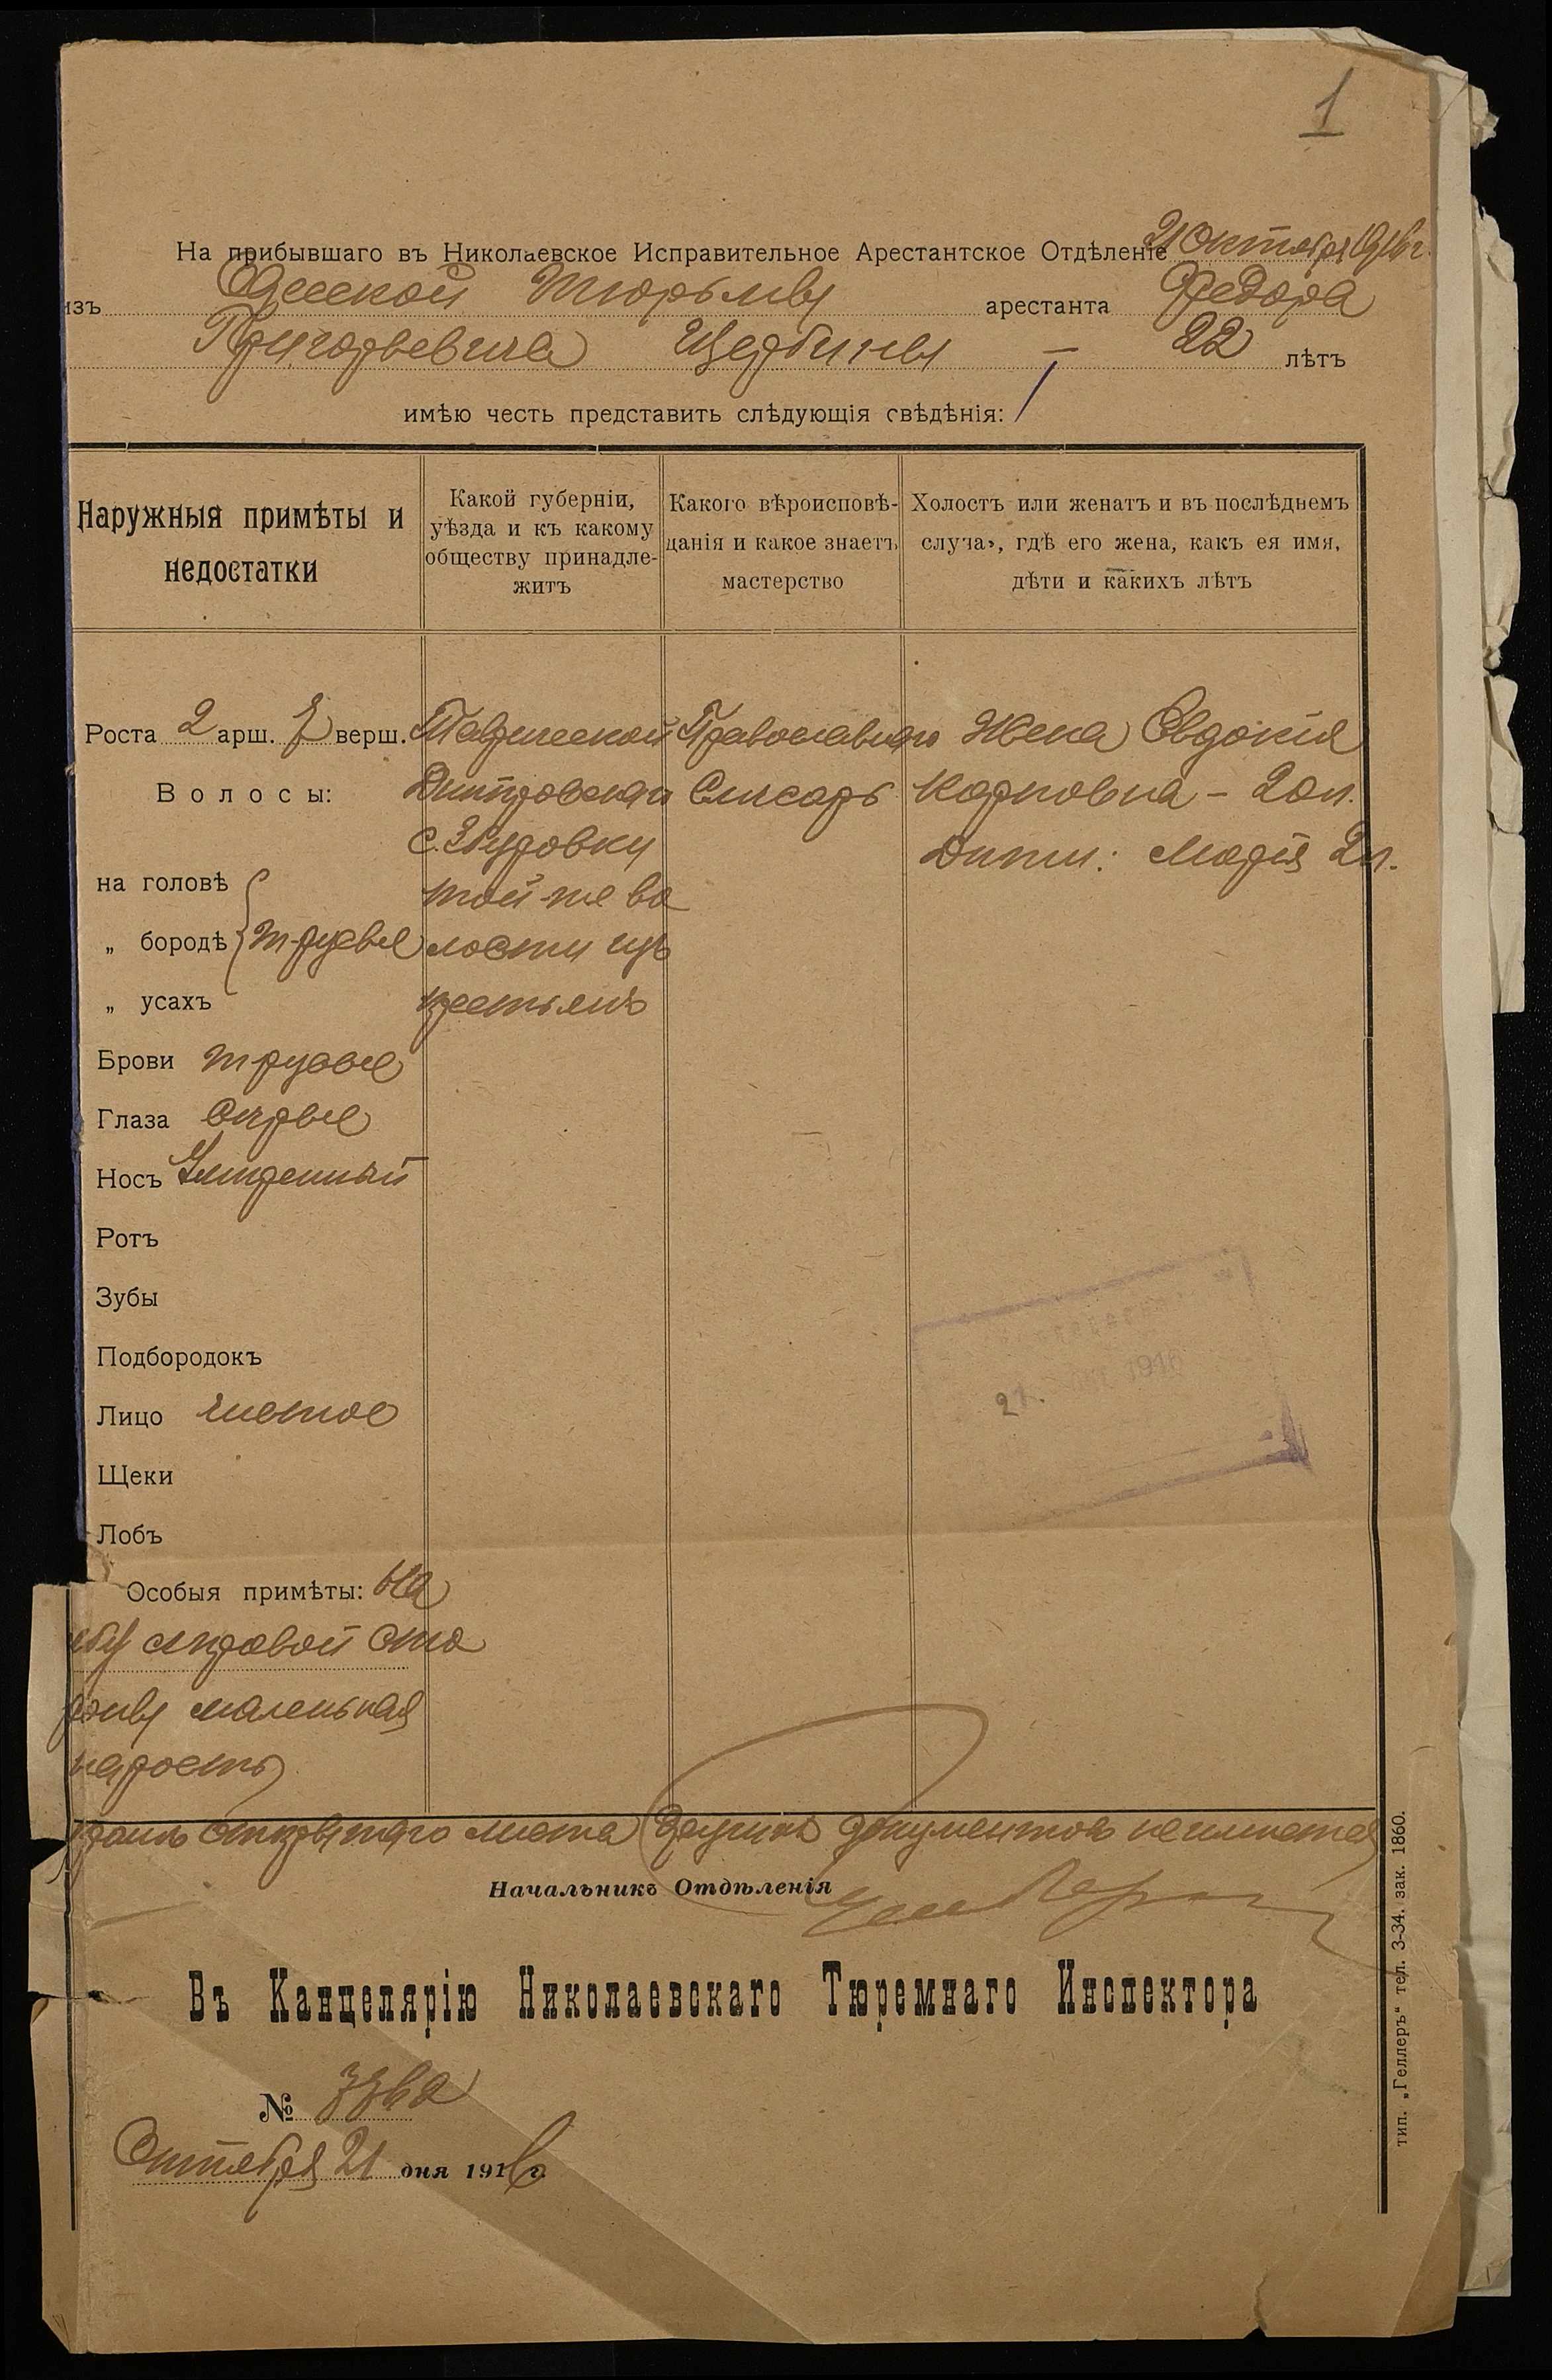 1
На прибывшаго въ Николаевское Исправительное Арестантское Отдѣленіе 21 Октября 1916 г.
изъ Одесской тюрьмы арестанта Федора
Григорьевича Щербины — 22 лѣтъ
имѣю честь представить слѣдующія свѣдѣнія:
Наружныя примѣты и недостатки
Какой губерніи,
уѣзда и къ какому
обществу принадле-
житъ
Какого вѣроисповѣ-
данія и какое знаетъ
мастерство
Холостъ или женатъ и въ послѣднемъ
случаѣ, гдѣ его жена, какъ ея имя,
дѣти и какихъ лѣтъ
Роста 2 арш. 7 верш.
Волосы:
на головѣ
„ бородѣ т-русые
„ усахъ
Брови т-русые
Глаза Сѣрые
Носъ Умѣренный
Ротъ
Зубы
Подбородокъ
Лицо чистое
Щеки
Лобъ
Особыя примѣты: На
лбу съ правой сто
роны маленькая
наростъ
Таврической
Днѣпровскаго
с. Збурьевки
той-же во
лости изъ
крестьянъ
Православнаго
Слѣсарь
Жена Евдокія
Карповна - 20 л.
Дѣти: Марія 2 л.
21. 1916
Кромѣ открытаго листа другихъ документовъ не имѣется
Начальникъ Отдѣленія
Въ Канцелярію Николаевскаго Тюремнаго Инспектора
№
Октября 21 дня 1916 г.
тип. „Геллеръ“ тел. 3-34. зак. 1860.